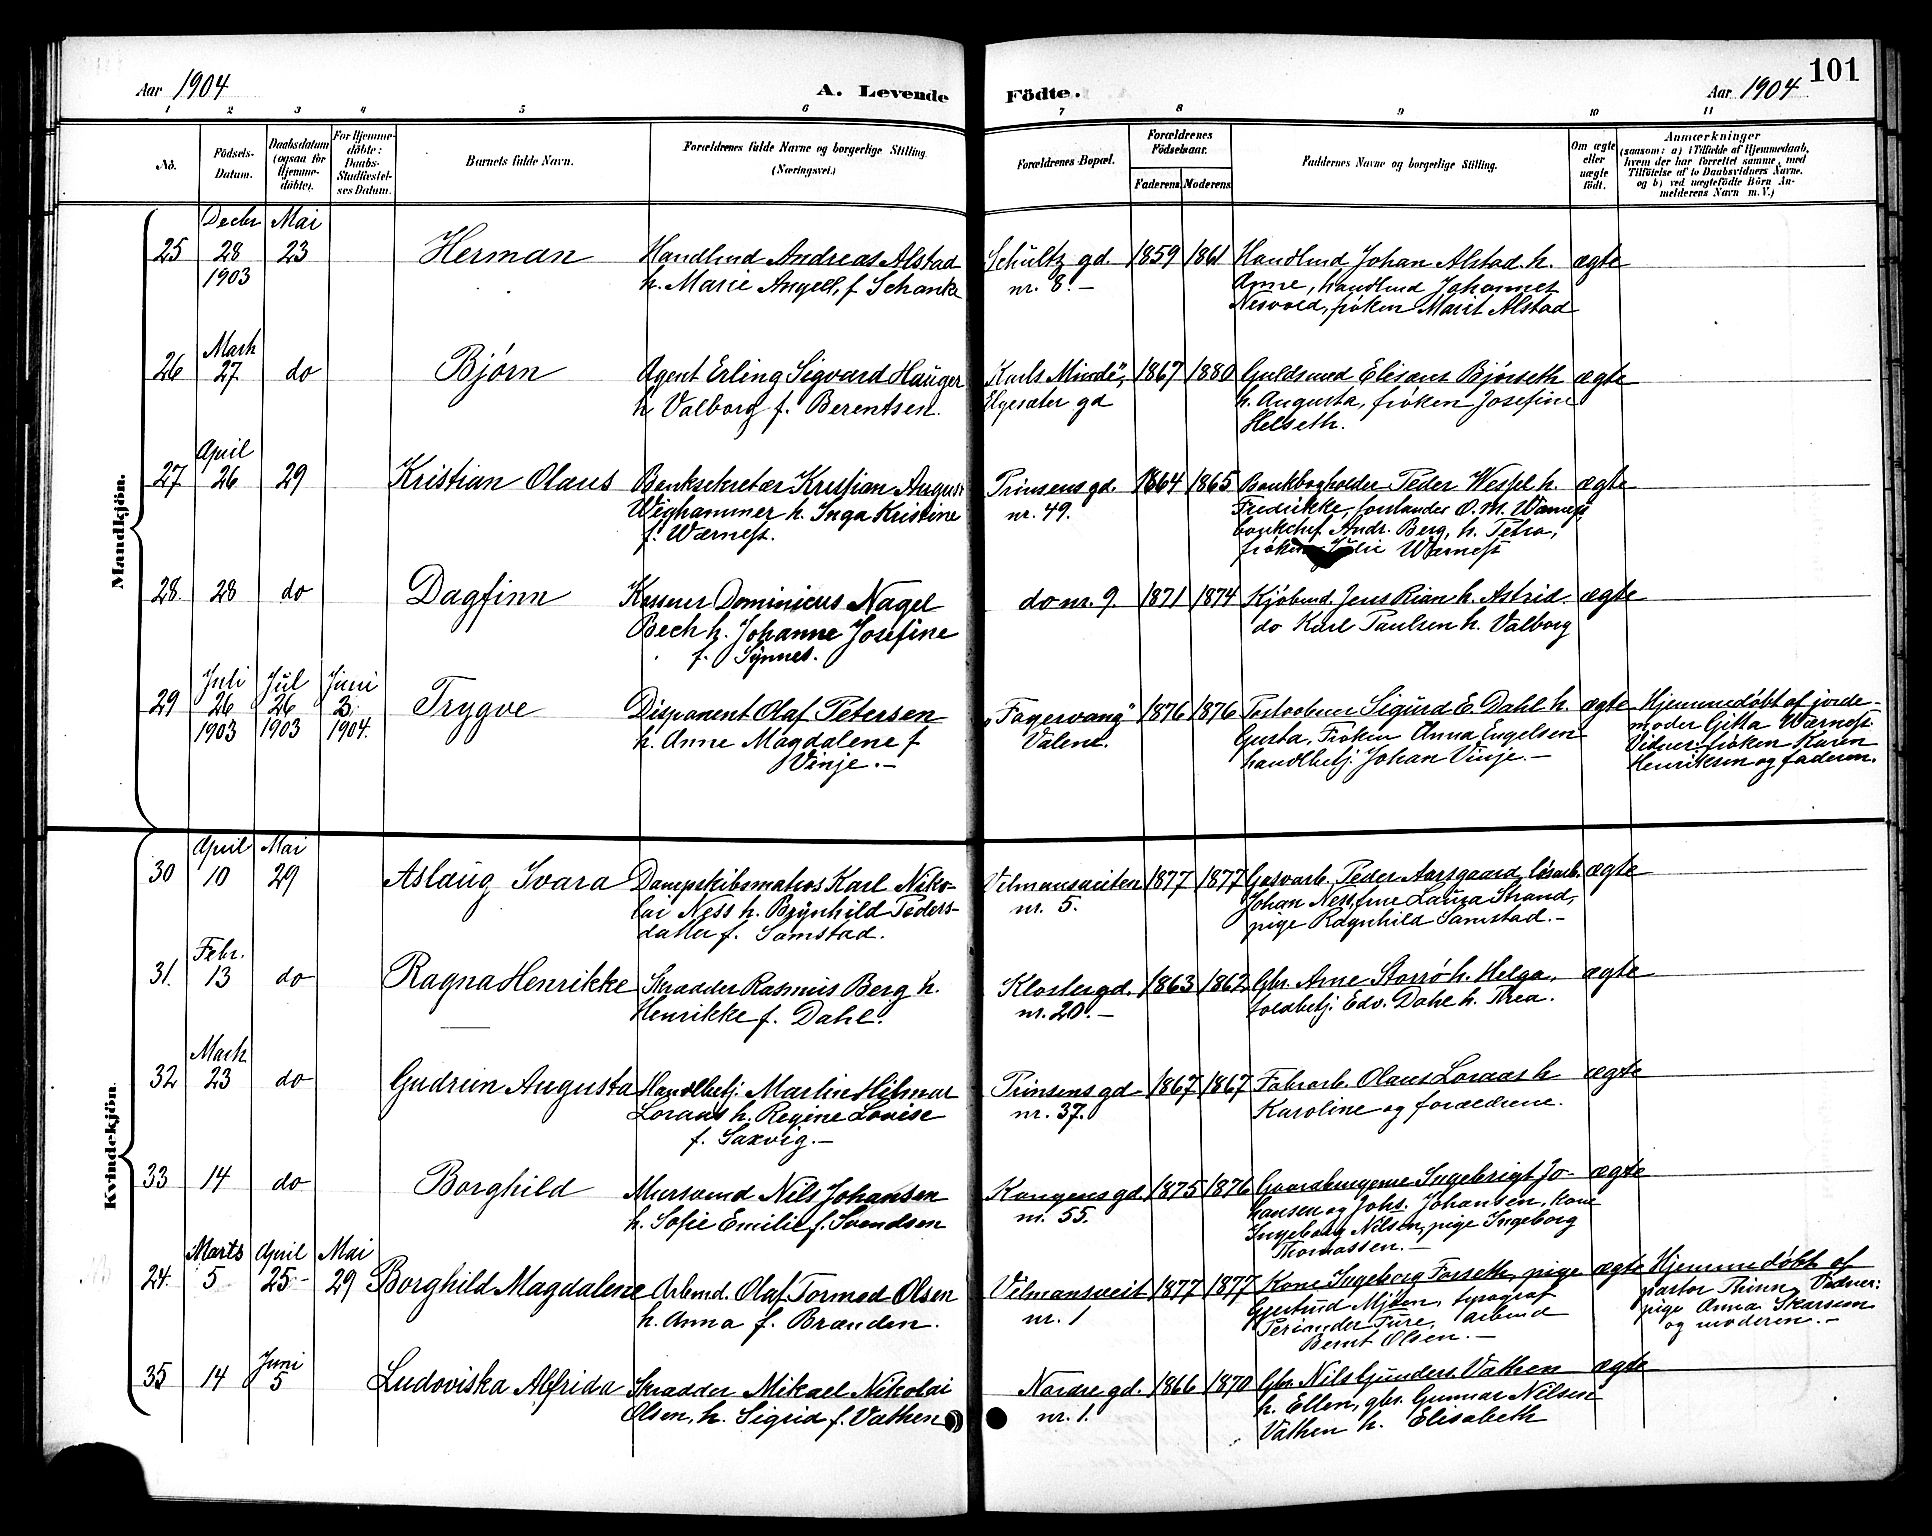 101
Aar 1904
A. Levende Födte.
Aar 1904
1 2 3 4 5 6 7 8 9 10 11
No.
Födsels-
Datum.
Daabsdatum
(ogsaa for
Hjemme-
döbte).
For Hjemme-
döbte:
Daabs-
Stadfæstel-
ses Datum.
Barnets fulde Navn.
Forældrenes fulde Navne og borgerlige Stilling.
(Næringsvei.)
Forældrenes Bopæl.
Forældrenes
Födselsaar.
Faderens. Moderens.
Faddernes Navne og borgerlige Stilling.
Om ægte
eller
uægte
født.
Anmærkninger
(saasom: a) i Tilfælde af Hjemmedaab,
hvem der har forrettet samme, med
Tilföielse af to Daabsvidners Navne,
og b) ved uægtefödte Börn An-
melderens Navn m. V.)
Mandkjön.
Decbr Mai
25 28 23 Herman Handlmd Andreas Alstad Schultz gd. 1859 1861 Handlmd Johan Alstad h. ægte
1903 h. Marie Angell, f. Schanke nr. 8.- Anne, handlmd Johannes
Nesvold, frøken Marit Alstad
Marts
26 27 do Bjørn Agent Erling Sigvard Hauger Karls Minde", 1867 1880 Guldsmed Elisæus Bjørseth ægte
h Valborg f. Berentsen. Elgesæter gd h. Augusta, frøken Josefine
Helseth.
April
27 26 29 Kristian Olaus Banksekretær Kristian August Prinsens gd. 1864 1865 Bankbogholder Peder Wessel h. ægte
Weghammer h. Inga Kristine nr. 49. Fredrikke, forstander O. M. Wærness,
f. Wærness. bankchef Andr. Berg, h. Petra,
frøken Julie Wærness
28. 28 do Dagfinn Kasserer Dominicus Nagel do nr. 9. 1871 1874 Kjøbmd. Jens Rian h. Astrid. ægte
Bech h. Johanne Josefine do Karl Paulsen h. Valborg
f. Synnes.
Juli Jul Juni
29 26 26 3. Trygve Disponent Olaf Petersen „Fagervang" 1876 1876 Postaabner Sigurd E. Dahl h. ægte Hjemmedøbt af jorde-
1903 1903 1904. h. Anne Magdalene f Valene. Gusta, Frøken Anna Engelsen moder Gitta Wærness.
Vinje.- handlbetj. Johan Vinje.- Vidner: frøken Karen
Henriksen og faderen.
Kvindekjön.
April Mai
30 10 29 Aslaug Svara Dampskibsmatros Karl Niko- Vilmansveiten 1877 1877 Gasvarb. Peder Aarsgaard, løsarb. ægte
lai Ness h. Brynhild Peders- nr. 5. Johan Ness, frue Laura Strand,
datter f. Samstad. pige Ragnhild Samstad.-
Febr.
31. 13 do Ragna Henrikke Skrædder Rasmus Berg h. Klostergd. 1863 1862 Gbr. Arne Storrø h. Helga, ægte
Henrikke f. Dahl. nr. 20.- toldbetj. Edv. Dahl h. Thea.
Marts
32 23 do Gudrun Augusta Handlbetj. Martin Hilmar Prinsens gd 1867 1867 Fabrarb. Olaus Loraas h ægte
Loraas h. Regine Lovise nr. 37. Karoline og forældrene.
f. Saxvig.-
33 14 do Borghild Mursvend Nils Johansen Kongens gd 1875 1876 Gaardbrugerne Ingebrigt Jo- ægte
h. Sofie Emilie f. Svendsen nr. 55. hansen og Johs. Johansen, kone
Ingeborg Nilsen, pige Ingeborg
Thomassen.-
Marts April Mai
24. 5 25- 29 Borghild Magdalene Arbmd. Olaf Tormod Olsen Vilmansveit 1877 1877 Kone Ingeborg Forseth, pige ægte Hjemmedøbt af
h. Anna f. Brænden. nr. 1 Gjertrud Mjøen, typograf pastor Thinn. Vidner:
Periander Ture, arbmd pige Anna Skarsem
Bernt Olsen.- og moderen.-
Juni
35 14 5 Ludoviska Alfrida Skrædder Mikael Nikolai Nordre gd. 1866 1870 Gbr. Nils Gunders. Vathen ægte
Olsen, h. Sigrid f. Vathen nr. 1. h. Ellen, gbr. Gunnar Nilsen
Vathen h. Elisabeth